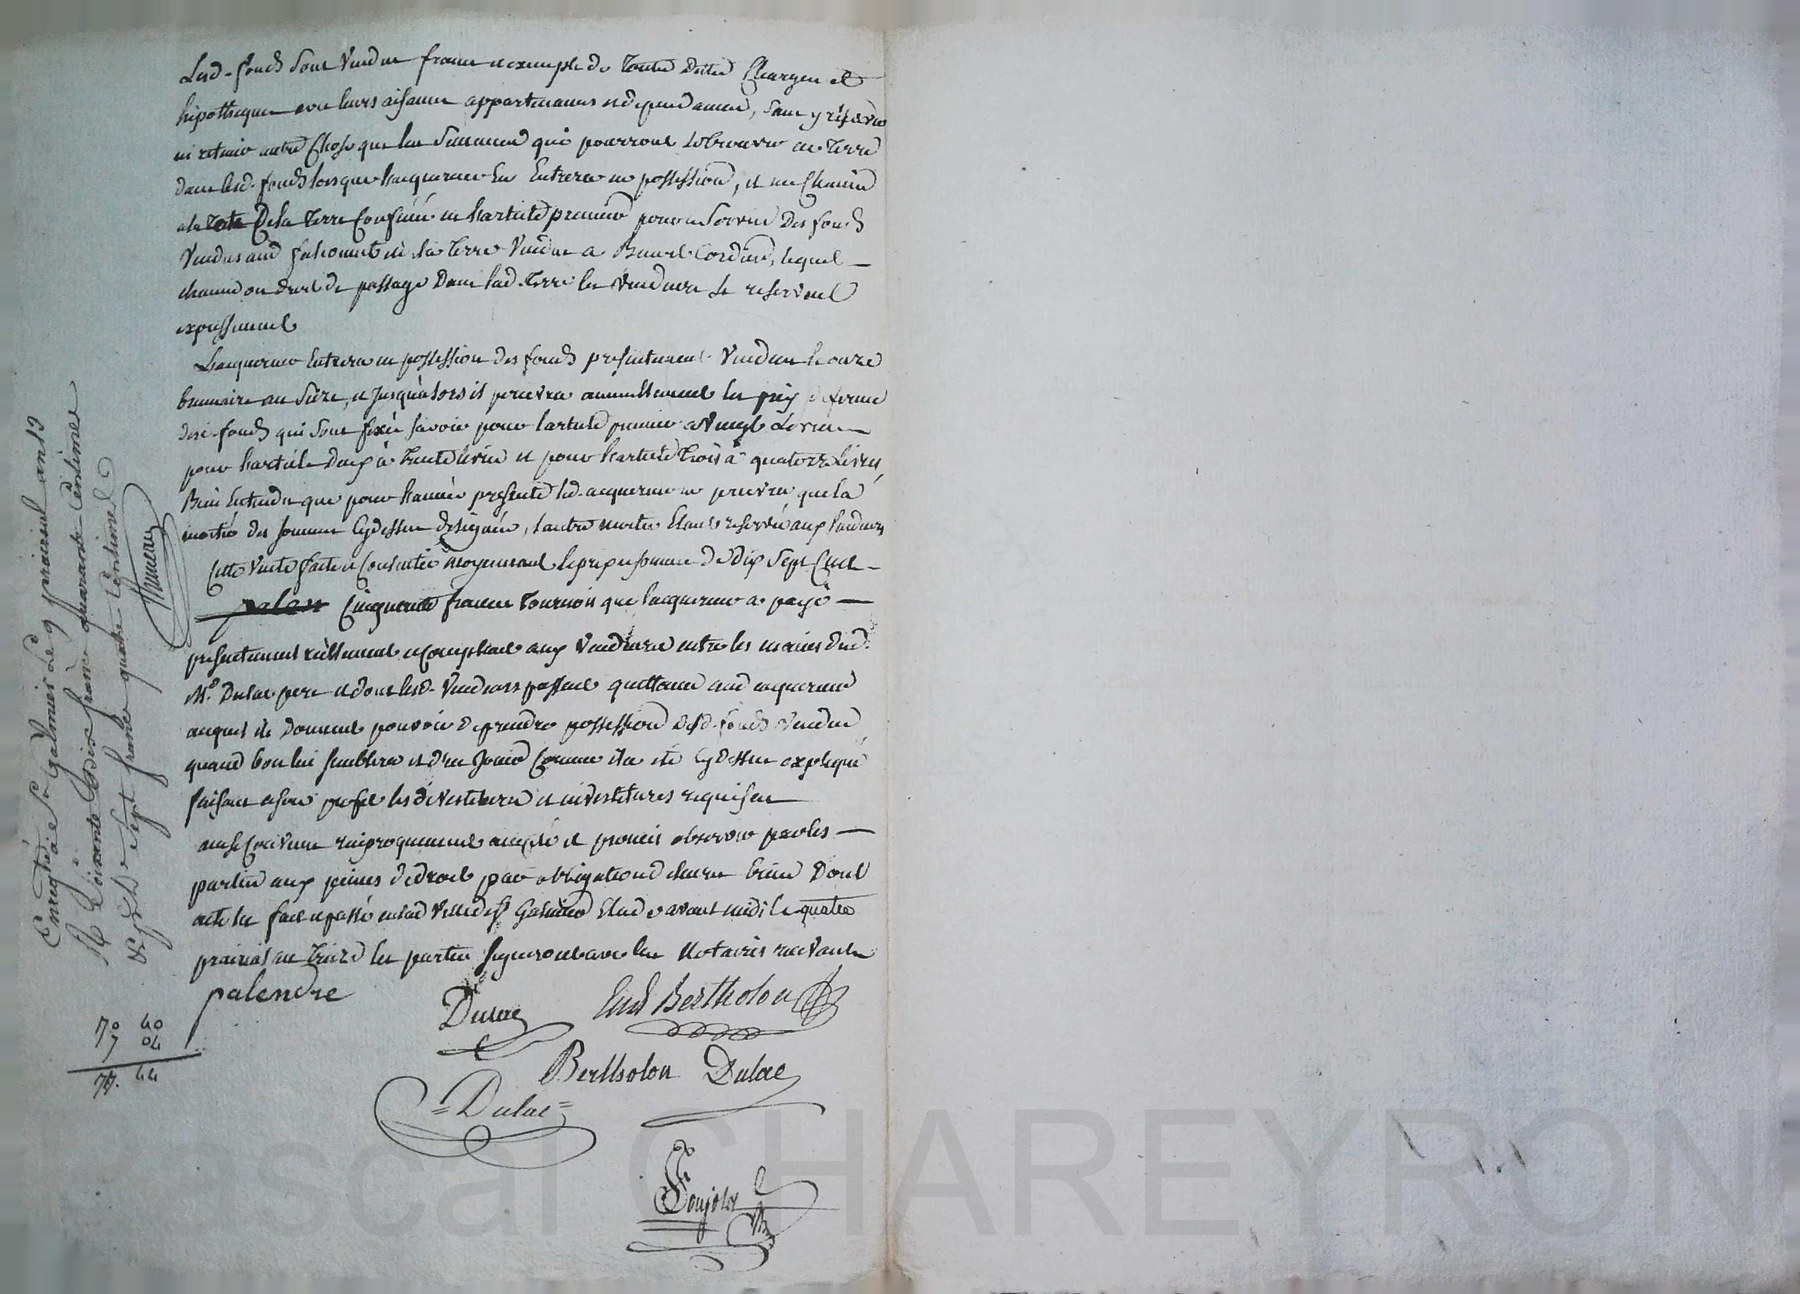 Lesd. fonds sont vendus francs et exempts de toutes dettes charges et
hipotheques avec leurs aisances appartenances et dependances, sans y reserver
ni retenir autre chose que les semences qui pourront se trouver en terre
dans lesd. fonds lorsque l'acquereur en entrera en possession, et un chemin
de la terre confinée en l'article premier pour le service des fonds
vendus aud et de la terre vendue a Cordier, lequel
chemin ou droit de passage dans lad. terre les vendeurs se reservent
expressement
L'acquereur entrera en possession des fonds presentement vendus le onze
brumaire an seize, et jusqu'alors il percevra annuellement les prix de ferme
desd. fonds qui sont fixés savoir pour l'article premier a vingt livres
pour l'article deux à trente livres et pour l'article trois à quatorze livres,
Bien entendu que pour l'année presente led. acquereur ne percevra que la
moitié des sommes cydessus designées, l'autre moitié etant reservée aux vendeurs
Cette vente faite et consentie moyennant le prix et somme de dix sept cent
cinquante francs tournois que l'acquereur a payé
presentement réellement et comptant aux vendeurs entre les mains dud.
Mr. Dulac pere et dont lesd. vendeurs passent quittance aud acquereur
auquel ils donnent pouvoir de prendre possession desd. fonds vendus
quand bon lui semblera et d'en jouir comme il a eté cydessus expliqué
faisant a son profit les devestitures et investitures requises
ainsi convenu reciproquement accepté et promis observer par les
parties aux peines de droit par obligation de leurs biens Dont
acte lu fait et passé en lad ville de St Galmier Etude avant midi le quatre
prairial an treize les parties signeront avec les Notaires recevants
palendre
Dulac Bertholon
Bertholon Dulac
= Dulac =
Foujols
Enregistré à St Galmier le 9 prairial an 13
R soixante dix francs quarante centimes
& sept francs quatre centimes
70 40
7 04
77. 44
ascal CHAREYRON